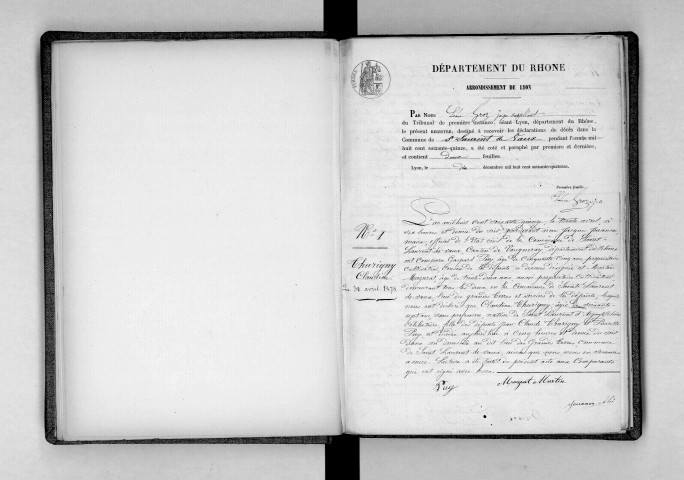 DÉPARTEMENT DU RHONE
ARRONDISSEMENT DE LYON
PAR NOUS Léon Gros juge suppléant
du Tribunal de première instance, séant Lyon, département du Rhône,
le présent REGISTRE, destiné à recevoir les déclarations de décès dans la
Commune de St Laurent de Vaux pendant l'année mil
huit cent soixante-quinze, a été coté et paraphé par premiere et dernière,
et contient deux feuilles.
Lyon, le décembre mil huit cent soixante-quatorze.
Première feuille.
Léon Gros
No 1
Thurigny
Claudine
30 avril 1875
L'an mil huit cent soixante quinze, le trente avril, à
six heures et demie du soir, par devant nous
maire, officier de l'état civil de la Commune de Saint
Laurent de vaux, Canton de Vaugneray, département du Rhône
ont comparu Gaspard Puy, âgé de Cinquante cinq ans, propriétaire
Cultivateur, Cousin de la défunte et Martin
Mazurat, âgé de ans
demeurant tous les deux en la commune de Saint Laurent
de vaux, lieu des grandes terres et voisins de la défunte, lesquels
nous ont déclaré que Claudine Thurigny, âgée de soixante
sept ans, sans profession, native de Saint Laurent d'Agny
Célibataire, fille des défunts Jean Claude Thurigny et Pierrette
Puy est décédée aujourd'hui à Cinq heures du soir
dans son domicile au dit lieu des Grandes Terres commune
de Saint Laurent de vaux, ainsi que nous nous en sommes
assuré. Lecture a été faite du présent acte aux Comparants
qui ont signé avec nous.
Puy Mazurat Martin